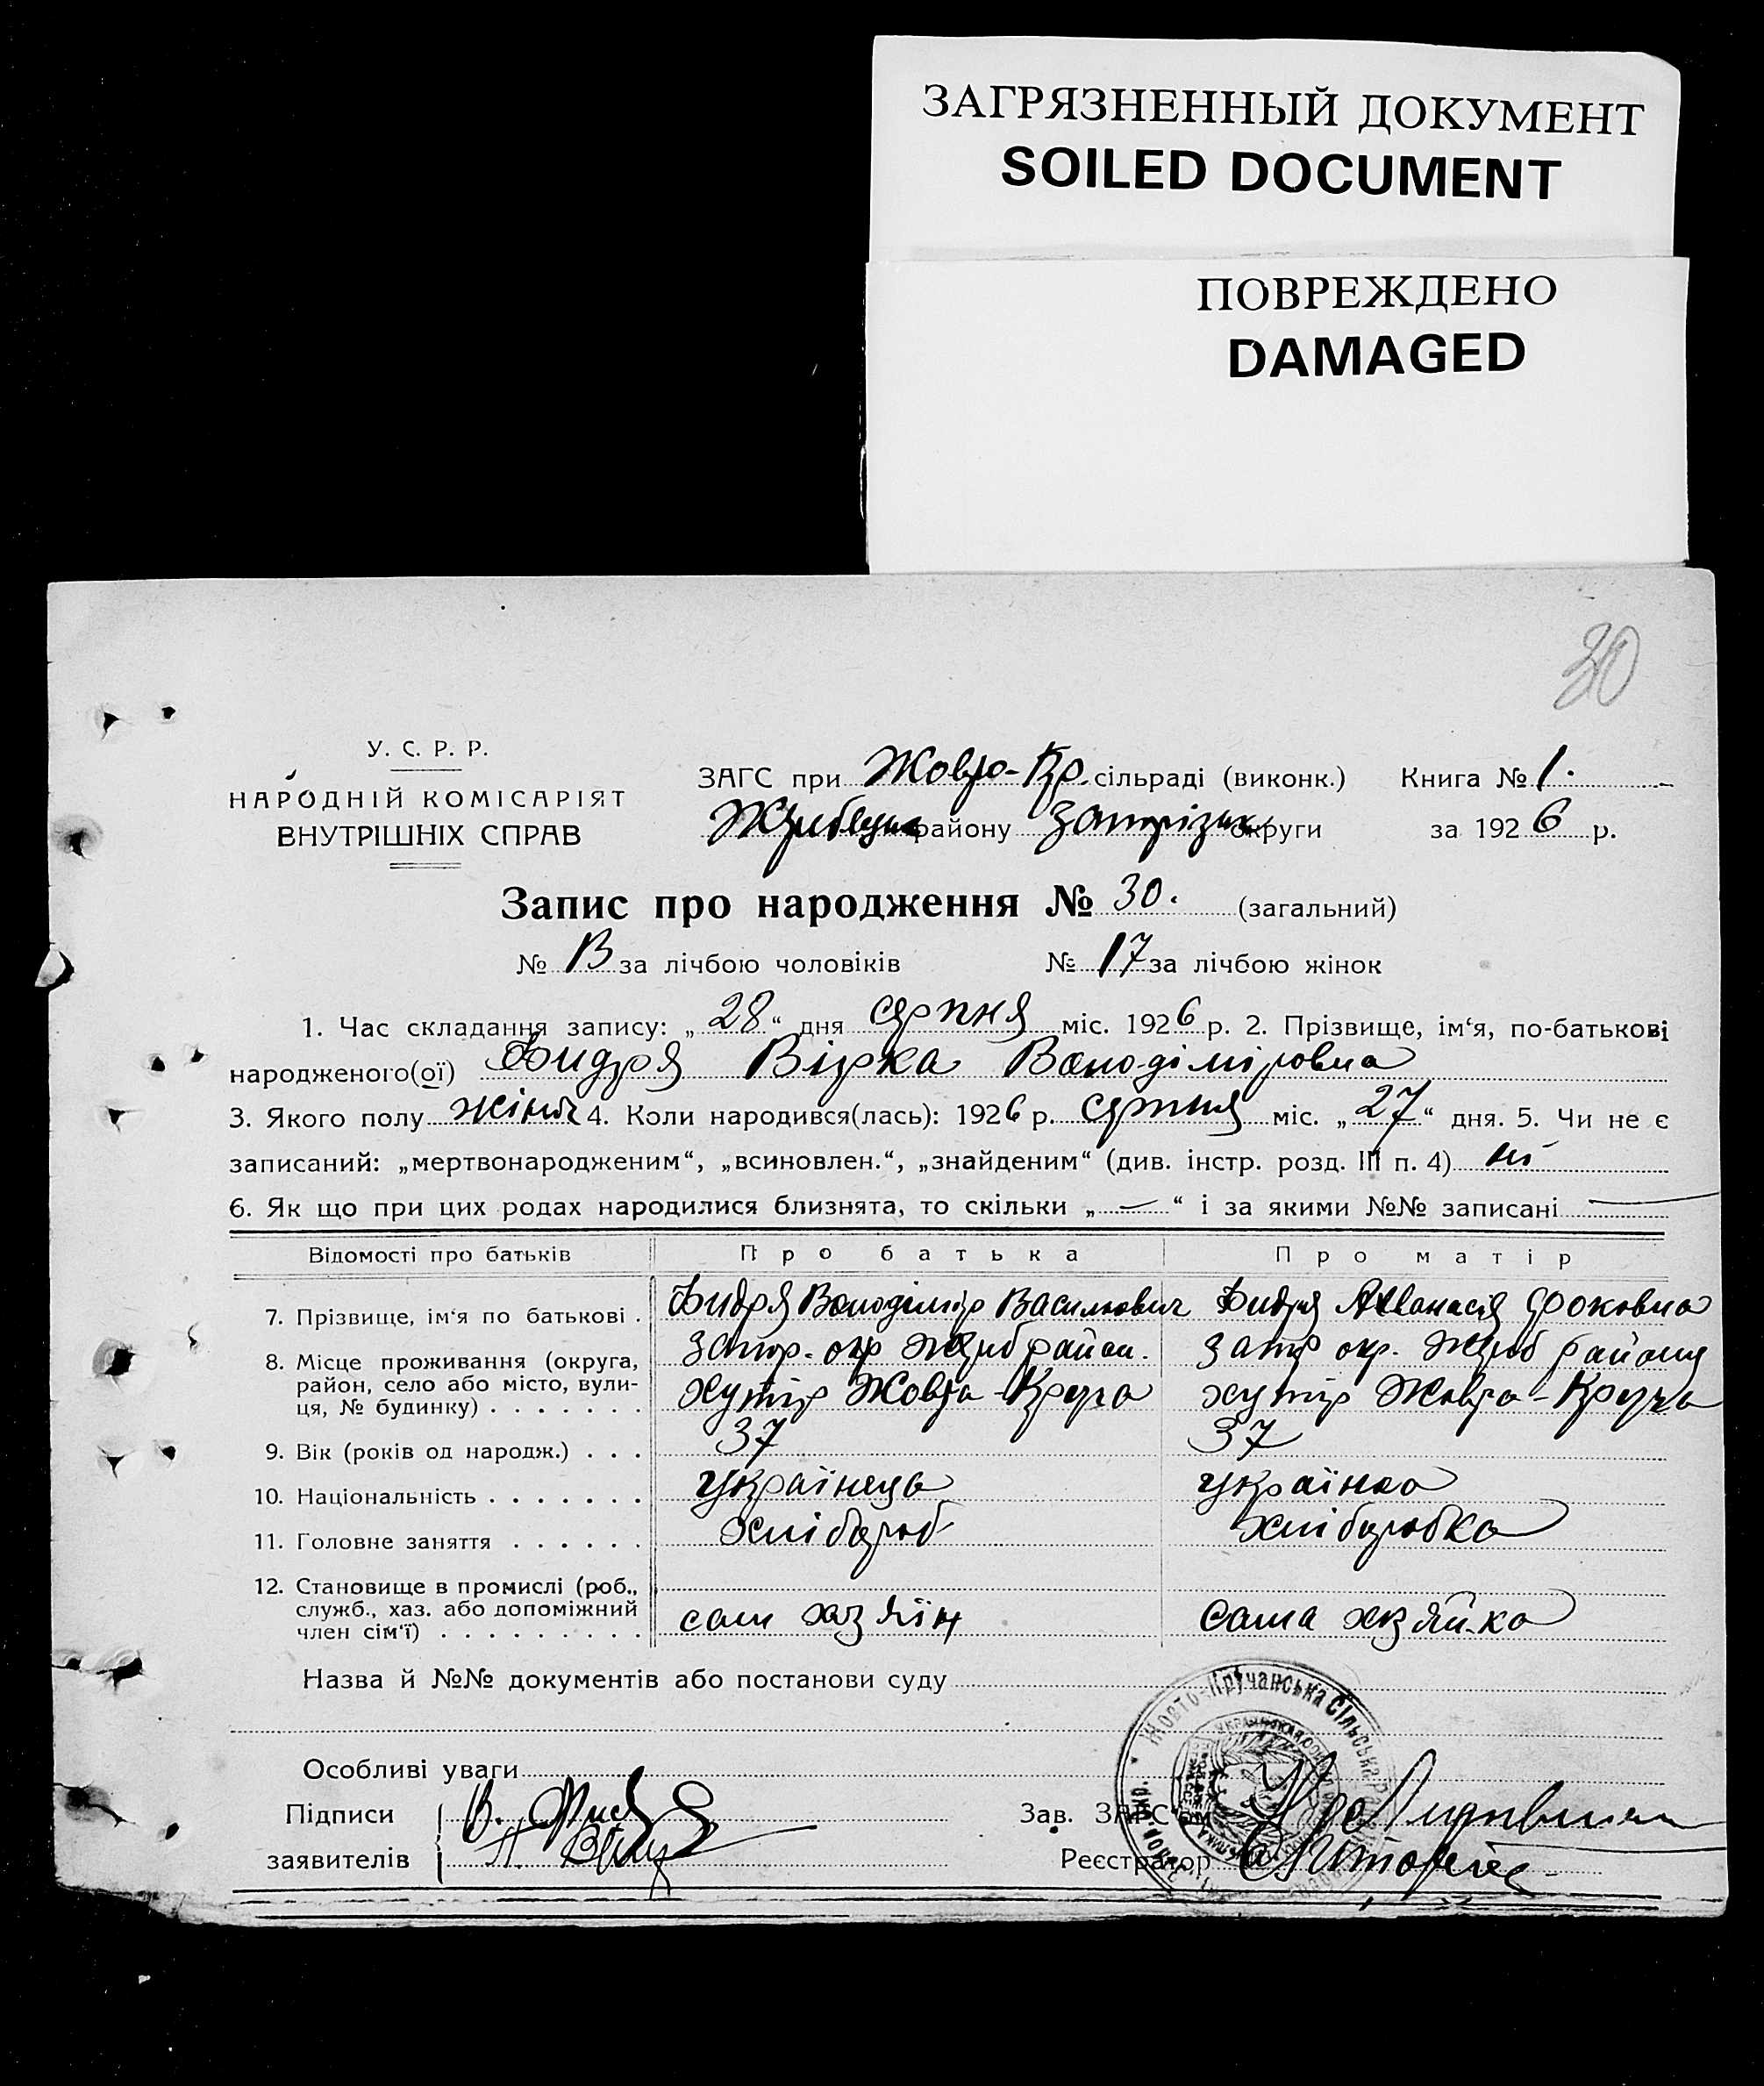 ЗАГРЯЗНЕННЫЙ ДОКУМЕНТ
SOILED DOCUMENT
ПОВРЕЖДЕНО
DAMAGED
30
У. С. Р. Р.
НАРОДНІЙ КОМІСАРІЯТ
ВНУТРІШНІХ СПРАВ
ЗАГС при Жовто-Кр. сільраді (виконк.) Книга № 1.
району Запорізьк округи за 1926 р.
Запис про народження № 30. (загальний)
№ 13 за лічбою чоловіків № 17 за лічбою жінок
1. Час складання запису: „28“ дня серпня міс. 1926 р. 2. Прізвище, ім‘я, по-батькові
народженого(ої) Вірка Володіміровна
3. Якого полу жіноч 4. Коли народився(лась): 1926 р. серпня міс. „27“ дня. 5. Чи не є
записаний: „мертвонародженим“, „всиновлен.“, „знайденим“ (див. інстр. розд. III п. 4) ні
6. Як що при цих родах народилися близнята, то скільки „—“ і за якими №№ записані —
Відомості про батьків Про батька Про матір
7. Прізвище, ім‘я по батькові . Володімір Василювич Фоковна
8. Місце проживання (округа, Запор. окр Жереб район. Запор окр. Жереб району
район, село або місто, вули- хутір Жовта-Круча хутір Жовта-Круча
ця, № будинку) . . . . . . .
9. Вік (років од народж.) . . . 37 37
10. Національність . . . . . . . українець українка
11. Головне заняття . . . . . . хлібороб хліборобка
12. Становище в промислі (роб.,
служб., хаз. або допоміжний сам хазяїн сама хазяйка
член сім‘ї) . . . . . . . . .
Назва й №№ документів або постанови суду
Жовто-Кручанська Сільська
Особливі уваги
Підписи В. Зав. ЗАГС‘ом
заявителів Реєстратор